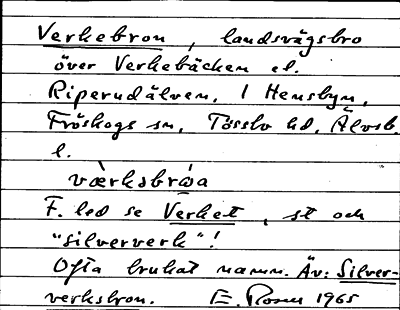 Verkebron, landsvägsbro
över Verkebäcken el.
Riperudälven, i Hensbyn,
Fröskogs sn, Tössbo hd, Älvsb.
l.
værksbrωa
F. led se Verket, st och
"silververk"!
Ofta brukat namn. Äv: Silver-
verksbron. E. Rosen 1965